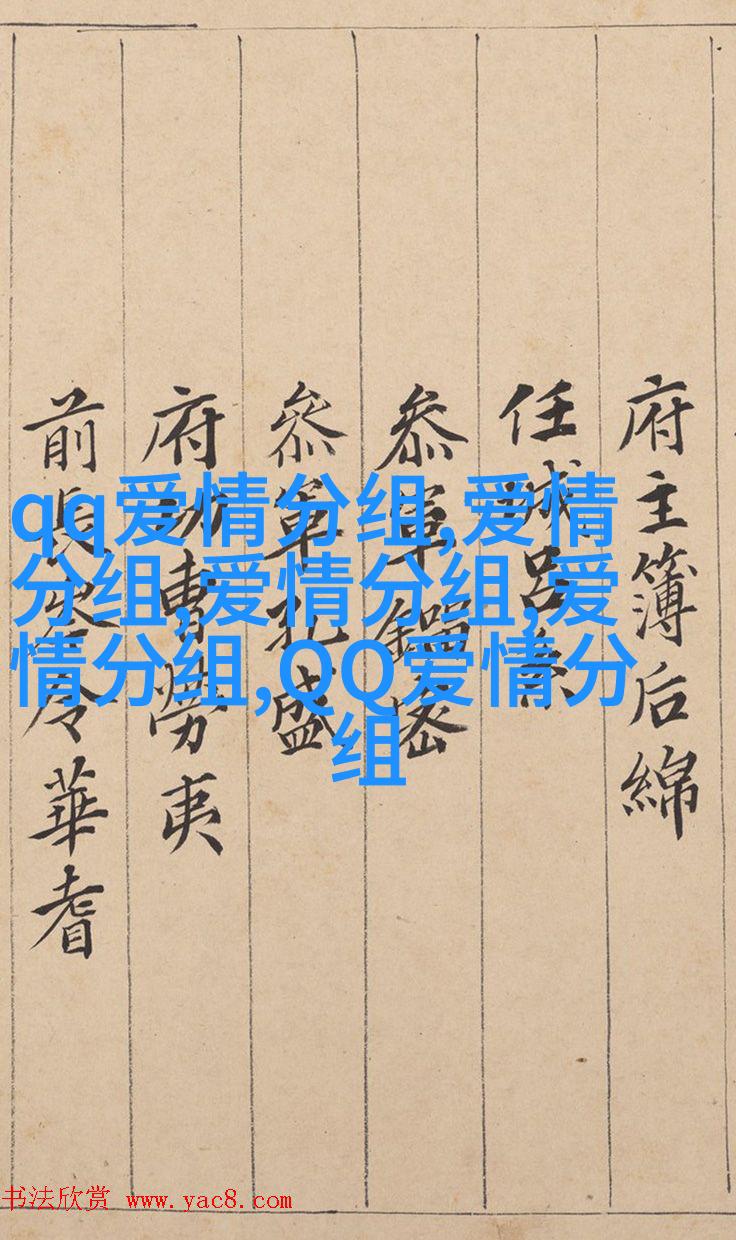 府主簿后綿
任城呂系
叅軍
叅軍孔盛
府功曹勞夷
前長岑令華耆
qq爱情分组,爱情
分组,爱情分组,爱
情分组,QQ爱情分
组
书法欣赏 www.yac8.com